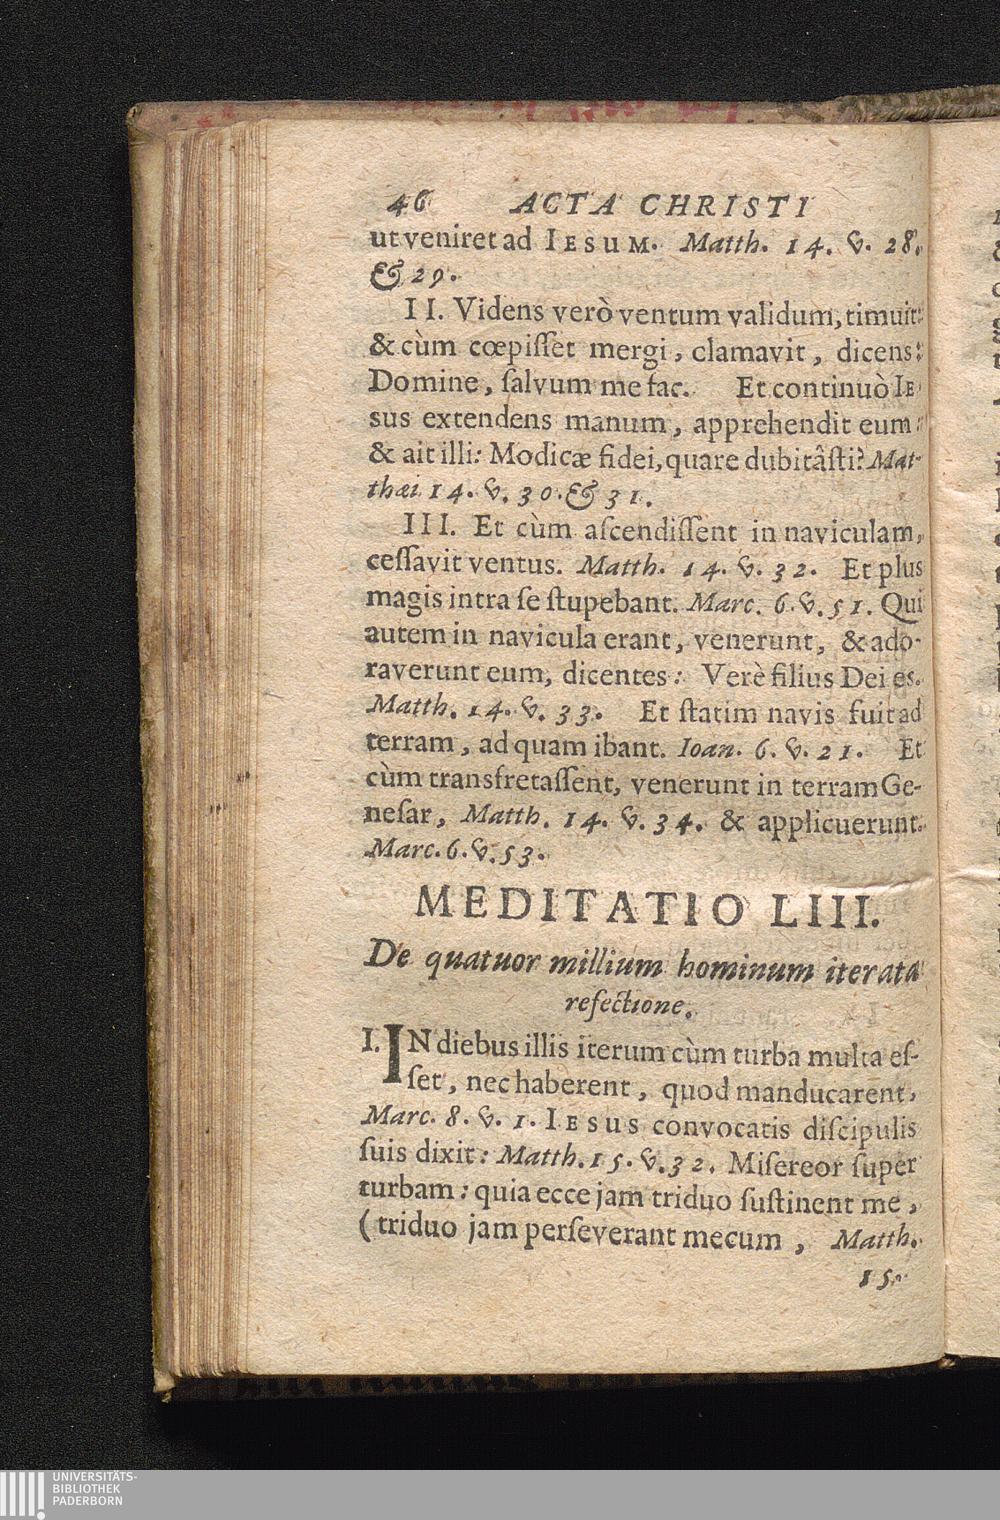 46 ACTA CHRISTI
ut veniret ad IESUM. Matth. 14. v. 28.
& 29.
II. Videns verò ventum validum, timuit:
& cùm cœpiſſet mergi, clamavit, dicens:
Domine, ſalvum me fac. Et continuò IE-
sus extendens manum, apprehendit eum:
& ait illi: Modicæ fidei, quare dubitâſti? Mat-
thæi 14. v. 30. & 31.
III. Et cùm aſcendiſſent in naviculam,
ceſſavit ventus. Matth. 14. v. 32. Et plus
magis intra ſe ſtupebant. Marc. 6. v. 51. Qui
autem in navicula erant, venerunt, & ado-
raverunt eum, dicentes: Verè filius Dei es.
Matth. 14. v. 33. Et ſtatim navis fuit ad
terram, ad quam ibant. Ioan. 6. v. 21. Et
cùm transfretaſſent, venerunt in terram Ge-
neſar, Matth. 14. v. 34. & applicuerunt.
Marc. 6. v. 53.
MEDITATIO LIII.
De quatuor millium hominum iterata
refectione.
I. IN diebus illis iterum cùm turba multa eſ-
ſet, nec haberent, quod manducarent,
Marc. 8. v. 1. IESUS convocatis diſcipulis
ſuis dixit: Matth. 15. v. 32. Miſereor ſuper
turbam: quia ecce jam triduo ſuſtinent me,
(triduo jam perſeverant mecum, Matth.
15.
UNIVERSITÄTS-
BIBLIOTHEK
PADERBORN